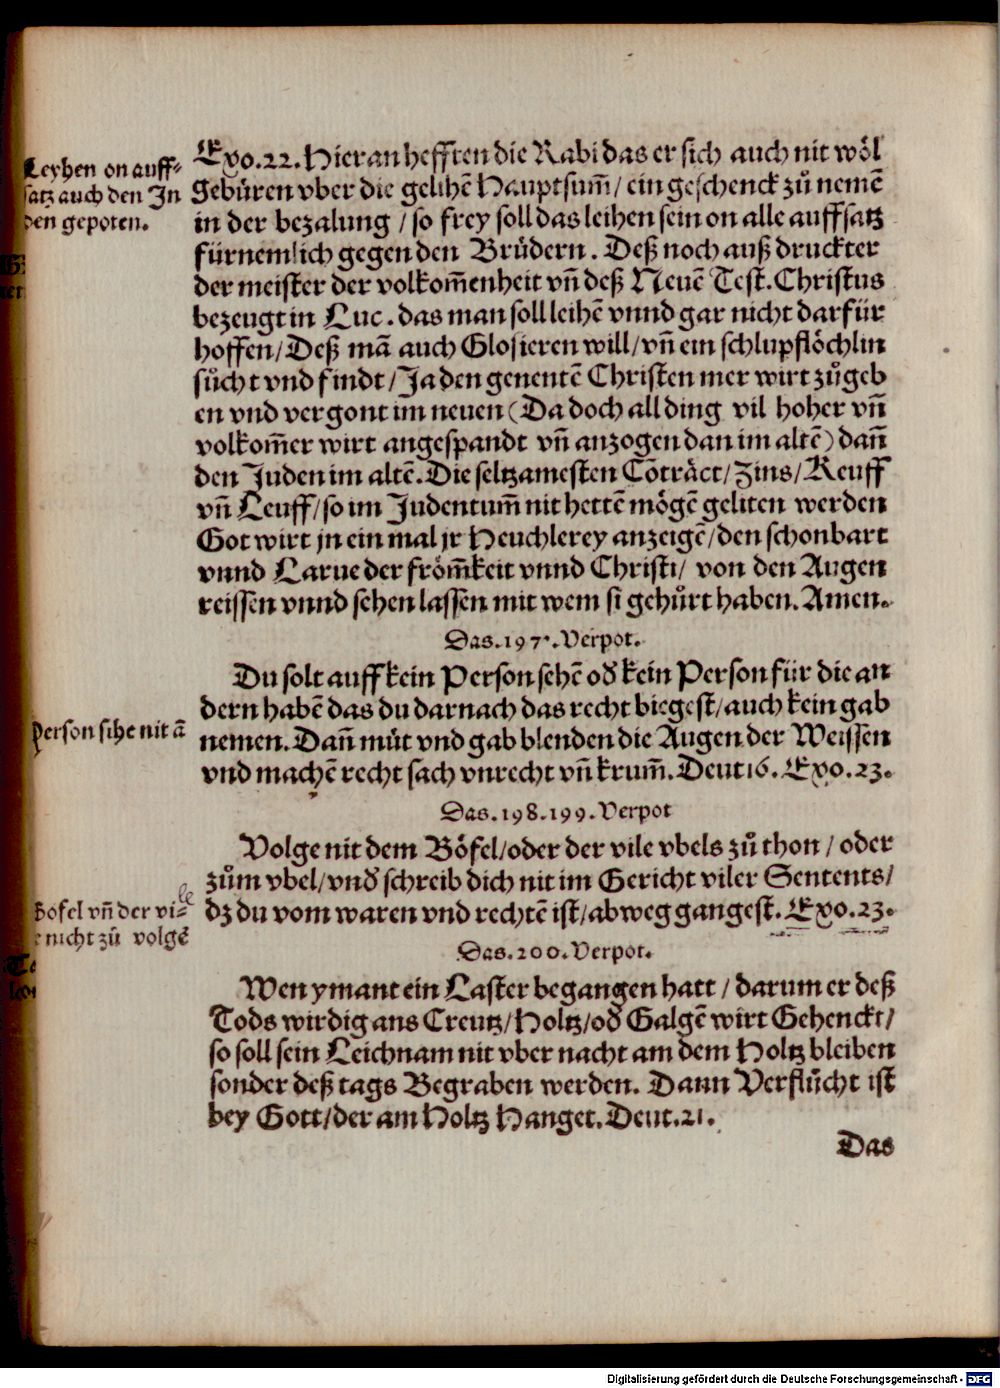 Leyhen on auff-
satz auch den Ju
den gepoten.
Exo.22. Hieran hefften die Rabi das er sich auch nit wöl
gebüren vber die gelihē Hauptsum̄/ ein geschenck zů nemē
in der bezalung / so frey soll das leihen sein on alle auffsatz
fürnemlich gegen den Brüdern. Deß noch auß druckter
der meister der volkom̄enheit vn̄ deß Neuē Test. Christus
bezeugt in Luc. das man soll leihē vnnd gar nicht darfür
hoffen/ Deß mā auch Glosieren will/ vn̄ ein schlupflöchlin
sůcht vnd findt / Ja den genentē Christen mer wirt zůgeb
en vnd vergont im neuen (Da doch all ding vil hoher vn̄
volkom̄er wirt angespandt vn̄ anzogen dan im altē) dan̄
den Juden im altē. Die seltzamesten Cōträct/ Zins/ Keuff
vn̄ Leuff/ so im Judentum̄ nit hettē mögē geliten werden
Got wirt jn ein mal jr Heuchlerey anzeigē/ den schonbart
vnnd Larue der fröm̄keit vnnd Christi/ von den Augen
reissen vnnd sehen lassen mit wem si gehůrt haben. Amen.
Das.197.Verpot.
Person sihe nit ā
Du solt auff kein Person sehē oď kein Person für die an
dern habē das du darnach das recht biegest/ auch kein gab
nemen. Dan̄ müt vnd gab blenden die Augen der Weissen
vnd machē recht sach vnrecht vn̄ krum̄. Deut 16. Exo. 23.
Das.198.199.Verpot
Bofel vn̄ der vi-
le
nicht zů volgē
Volge nit dem Böfel/ oder der vile vbels zů thon / oder
zům vbel/ vnď schreib dich nit im Gericht viler Sentents/
dz du vom waren vnd rechtē ist/ abweg gangest. Exo. 23.
Das.200.Verpot.
Wen ymant ein Laster begangen hatt / darum er deß
Tods wirdig ans Creutz/ Holtz/ oď Galgē wirt Gehenckt/
so soll sein Leichnam nit vber nacht am dem Holtz bleiben
sonder deß tags Begraben werden. Dann Verflůcht ist
bey Gott/ der am Holtz Hanget. Deut. 21.
Das
Digitalisierung gefördert durch die Deutsche Forschungsgemeinschaft - DFG